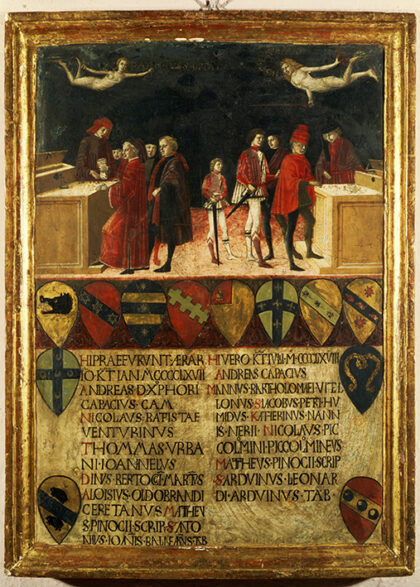 HI PRAEFVRVNT AERAR
IO·KT·IAN·M·CCCCLXVII
ANDREAS·D·XPHORI
CAPACIVS·CAM
NICOLAVS·BATISTAE
VENTVRINVS
THOMMAS VRBA
NI·IOANNELVS
DINVS·BERTOCI·MARTIS
ALOISIVS·OLDOBRANDI
CERETANVS MATHEV
S·PINOCII·SCRIP·SATO
NIVS·IOANIS
HI VERO KT·IVLI·M·CCCCLXVIII
ANDREAS CAPACIVS
MANNVS·BARTHOLOMEI·VITEL
LONVS·SIACOBVS·PETRI·HV
MIDVS·KATHERINVS·NANN
IS·NERII·NICOLAVS·PIC
COLMINI·PICCOLMINEVS
MATHEVS·PINOCII·SCRIP
SARDVINVS·LEONAR
DI·ARDVINVS·TAB·